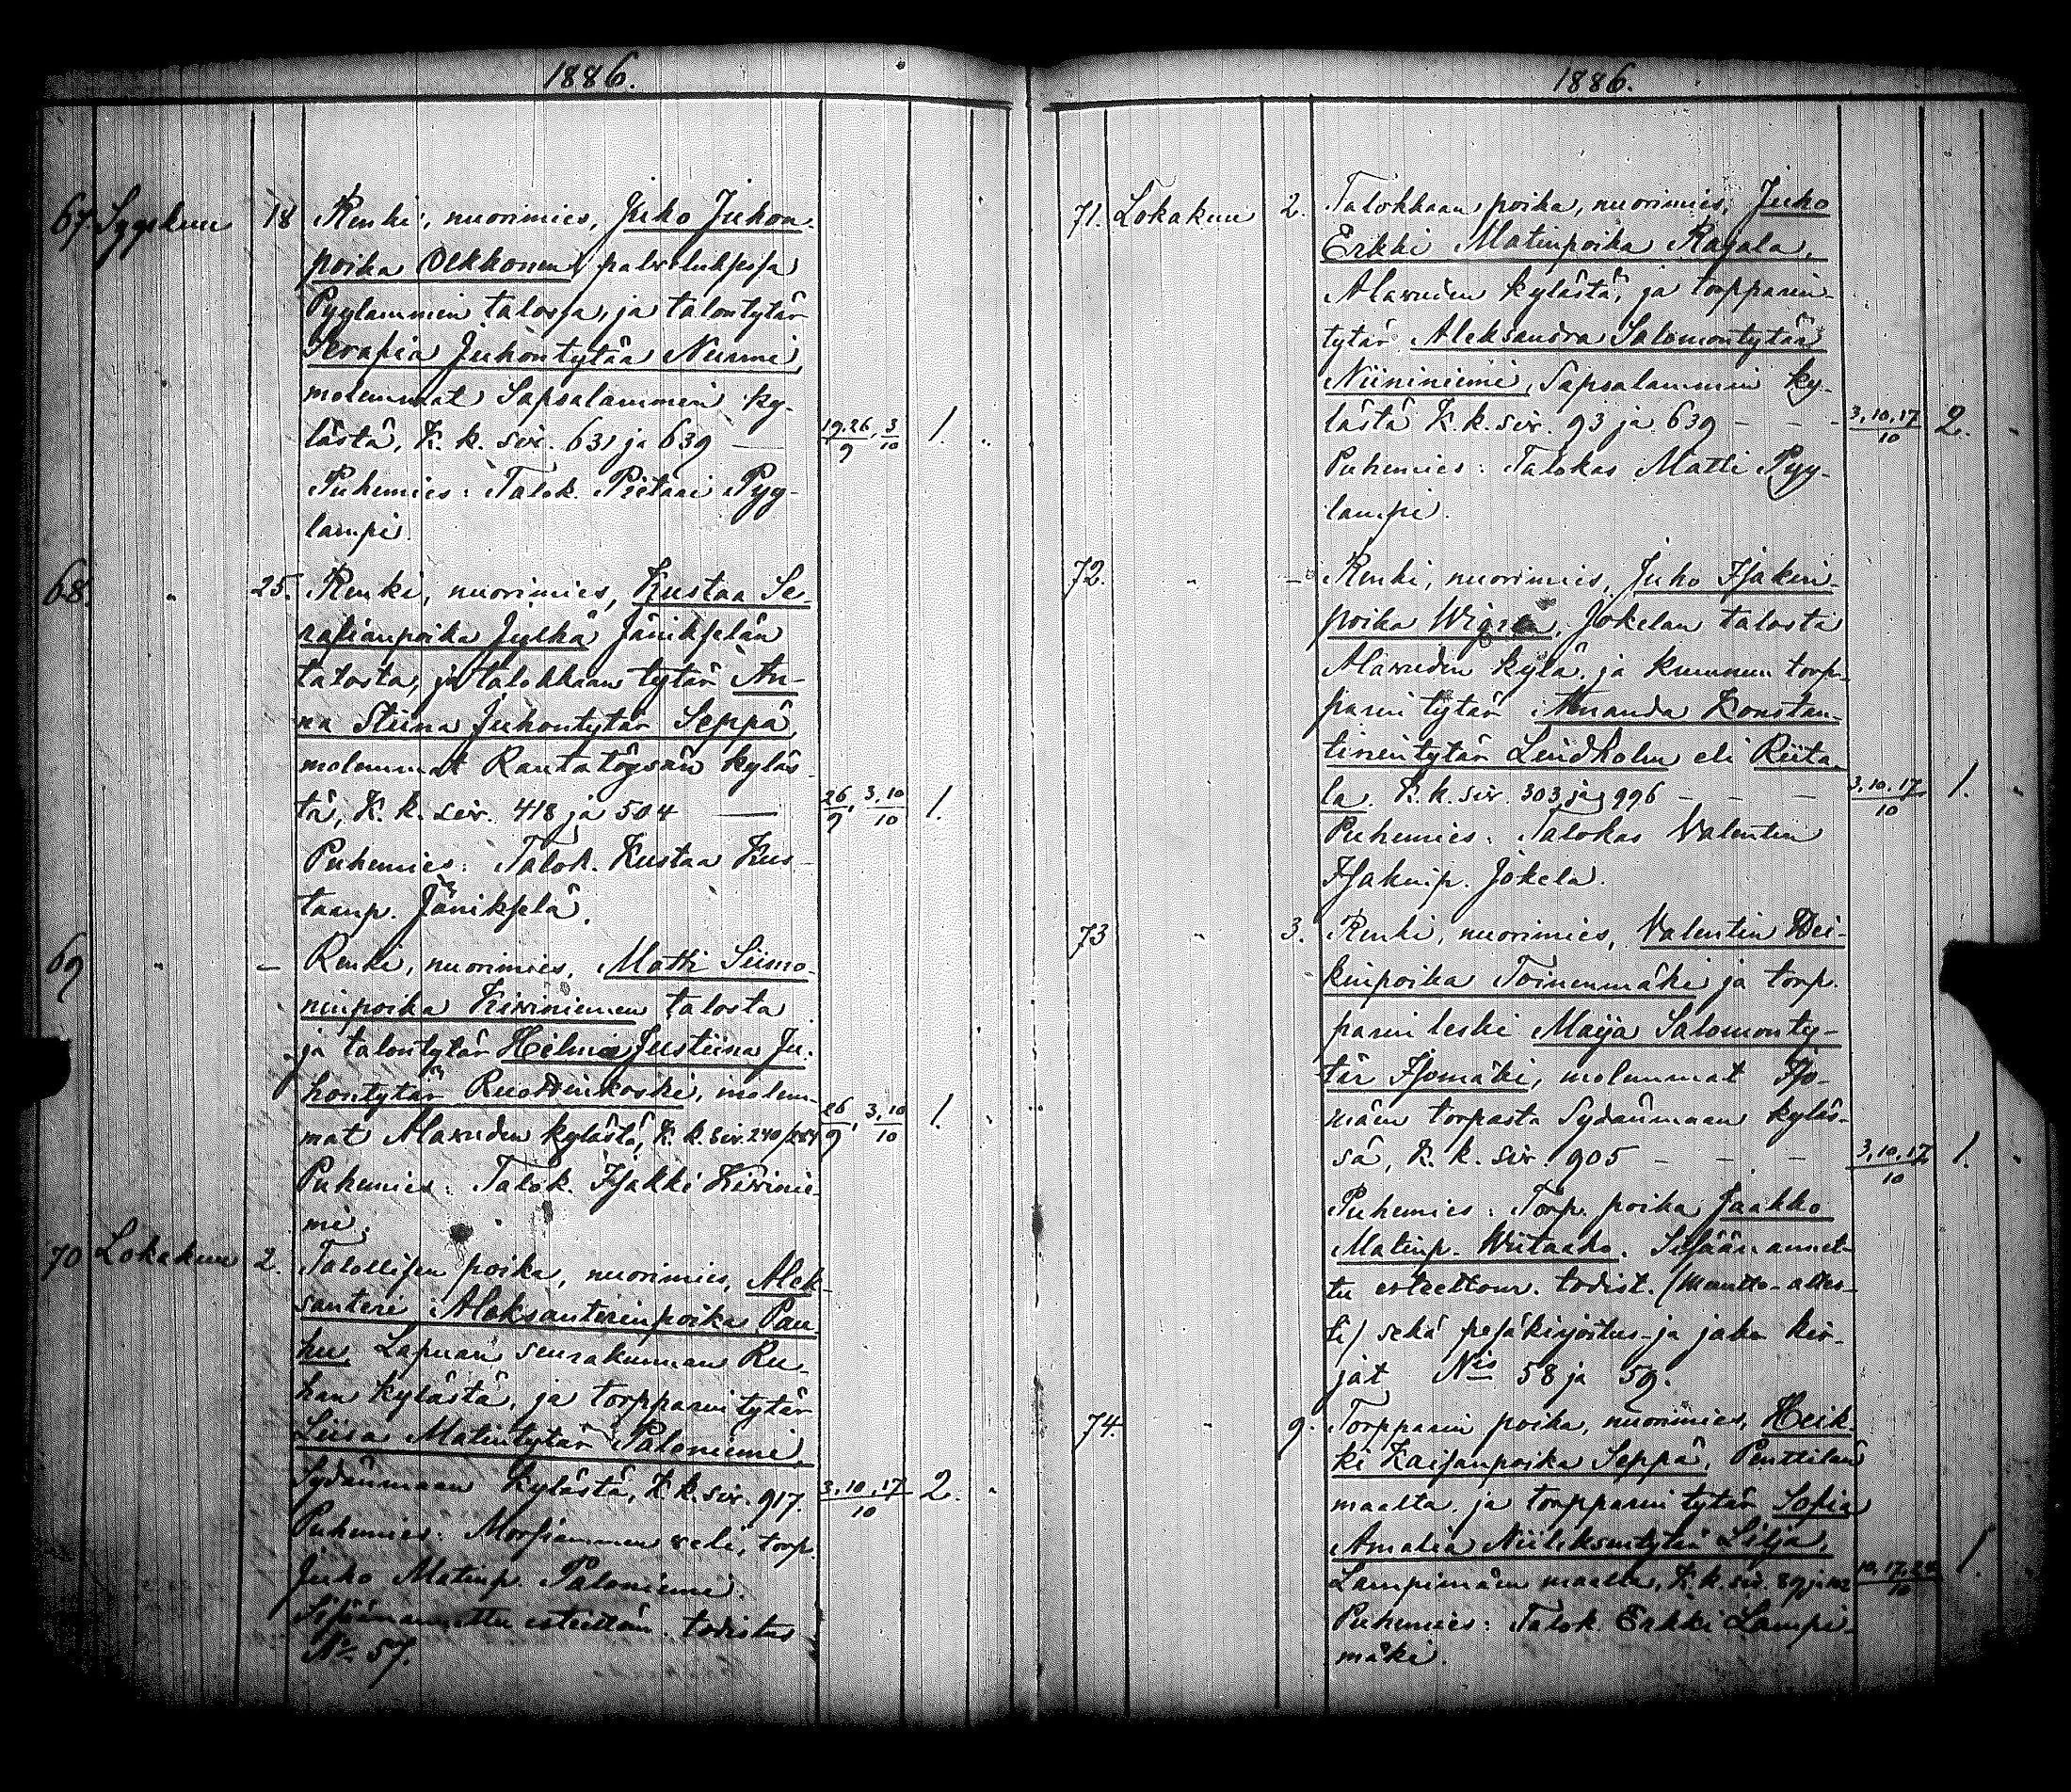 1886.
67. Syyskuu 18 Renki, nuorimies, Juho Juhon-
poika Olkkonen, palveluksessa
Pyylammin talossa, ja talontytär
Serafia Juhontytär Nurmi,
molemmat Sapsalammin ky-
lästä, K. k. siv. 631 ja 639 — 19.26/9, 3/10 1.
Puhemies: Talok. Pietari Pyy-
lampi.
68. " 25. Renki, nuorimies, Kustaa Se-
rafianpoika Jylhä Jänikselän
talosta, ja talokkaan tytär An-
na Stiina Juhontytär Seppä,
molemmat Rantatöysän kyläs-
tä, K. k. siv. 418 ja 504 — 26/9, 3,10/10 1.
Puhemies: Talok. Kustaa Kus-
taanp. Jänikselä.
69 " — Renki, nuorimies, Matti Siimo-
ninpoika Kiviniemen talosta
ja talontytär Hilma Justiina Ju-
hontytär Ruottinkoski, molem-
mat Alavuden kylästä, K. k. siv. 240/284 26/9, 3,10/10 1.
Puhemies: Talok. Isakki Kivinie-
mi.
70 Lokakuu 2. Talollisen poika, nuorimies, Alek-
santeri Aleksanterinpoika Pau-
hu Lapuan seurakunnan Ru-
han kylästä, ja torpparin tytär
Liisa Matintytär Paloniemi
Sydänmaan kylästä, K. k. siv. 917. 3,10,17/10 2.
Puhemies: Morsiammen veli, torp.
Juho Matinp. Paloniemi.
Sisäänannettu esteettöm. todistus
No 57.
1886.
71. Lokakuu 2. Talokkaan poika, nuorimies, Juho
Erkki Matinpoika Rayala,
Alavuden kylästä, ja torpparin-
tytär Aleksandra Salomontytär
Niininiemi, Sapsalammin ky-
lästä K. k. siv. 93 ja 639 — — - 3,10,17/10 2.
Puhemies: Talokas Matti Pyy-
lampi.
72. " — Renki, nuorimies, Juho Isakin-
poika Wigren, Jokelan talosta
Alavuden kylä, ja kunnan torp-
parin tytär Amanda Konstan-
tinintytär Lindholm eli Riita-
la. K. k. siv. 303 ja 996 — — — 3,10,17/10 1.
Puhemies: Talokas Valentin
Isakinp. Jokela.
73 " 3. Renki, nuorimies, Valentin Hei-
kinpoika Toinenmäki ja torp-
parin leski Maija Salomonty-
tär Isomäki, molemmat Iso-
mäen torpasta Sydänmaan kyläs-
sä, K. k. siv. 905 — — — 3,10,17/10 1.
Puhemies: Torp. poika Jaakko
Matinp. Wiitaaho. Sisään annet-
tu esteettöm. todist. (Muutto-attes-
ti) sekä pesäkirjoitus- ja jako kir-
jat Nis 58 ja 59.
74. " 9. Torpparin poika, nuorimies, Heik-
ki Kaisanpoika Seppä, Penttilän
maalta, ja torpparin tytär Sofia
Amalia Niileksentytär Lilja,
Lampimäen maalta, K. k. siv. 10,17,24/10 1.
Puhemies: Talok. Erkki Lampi-
mäki.